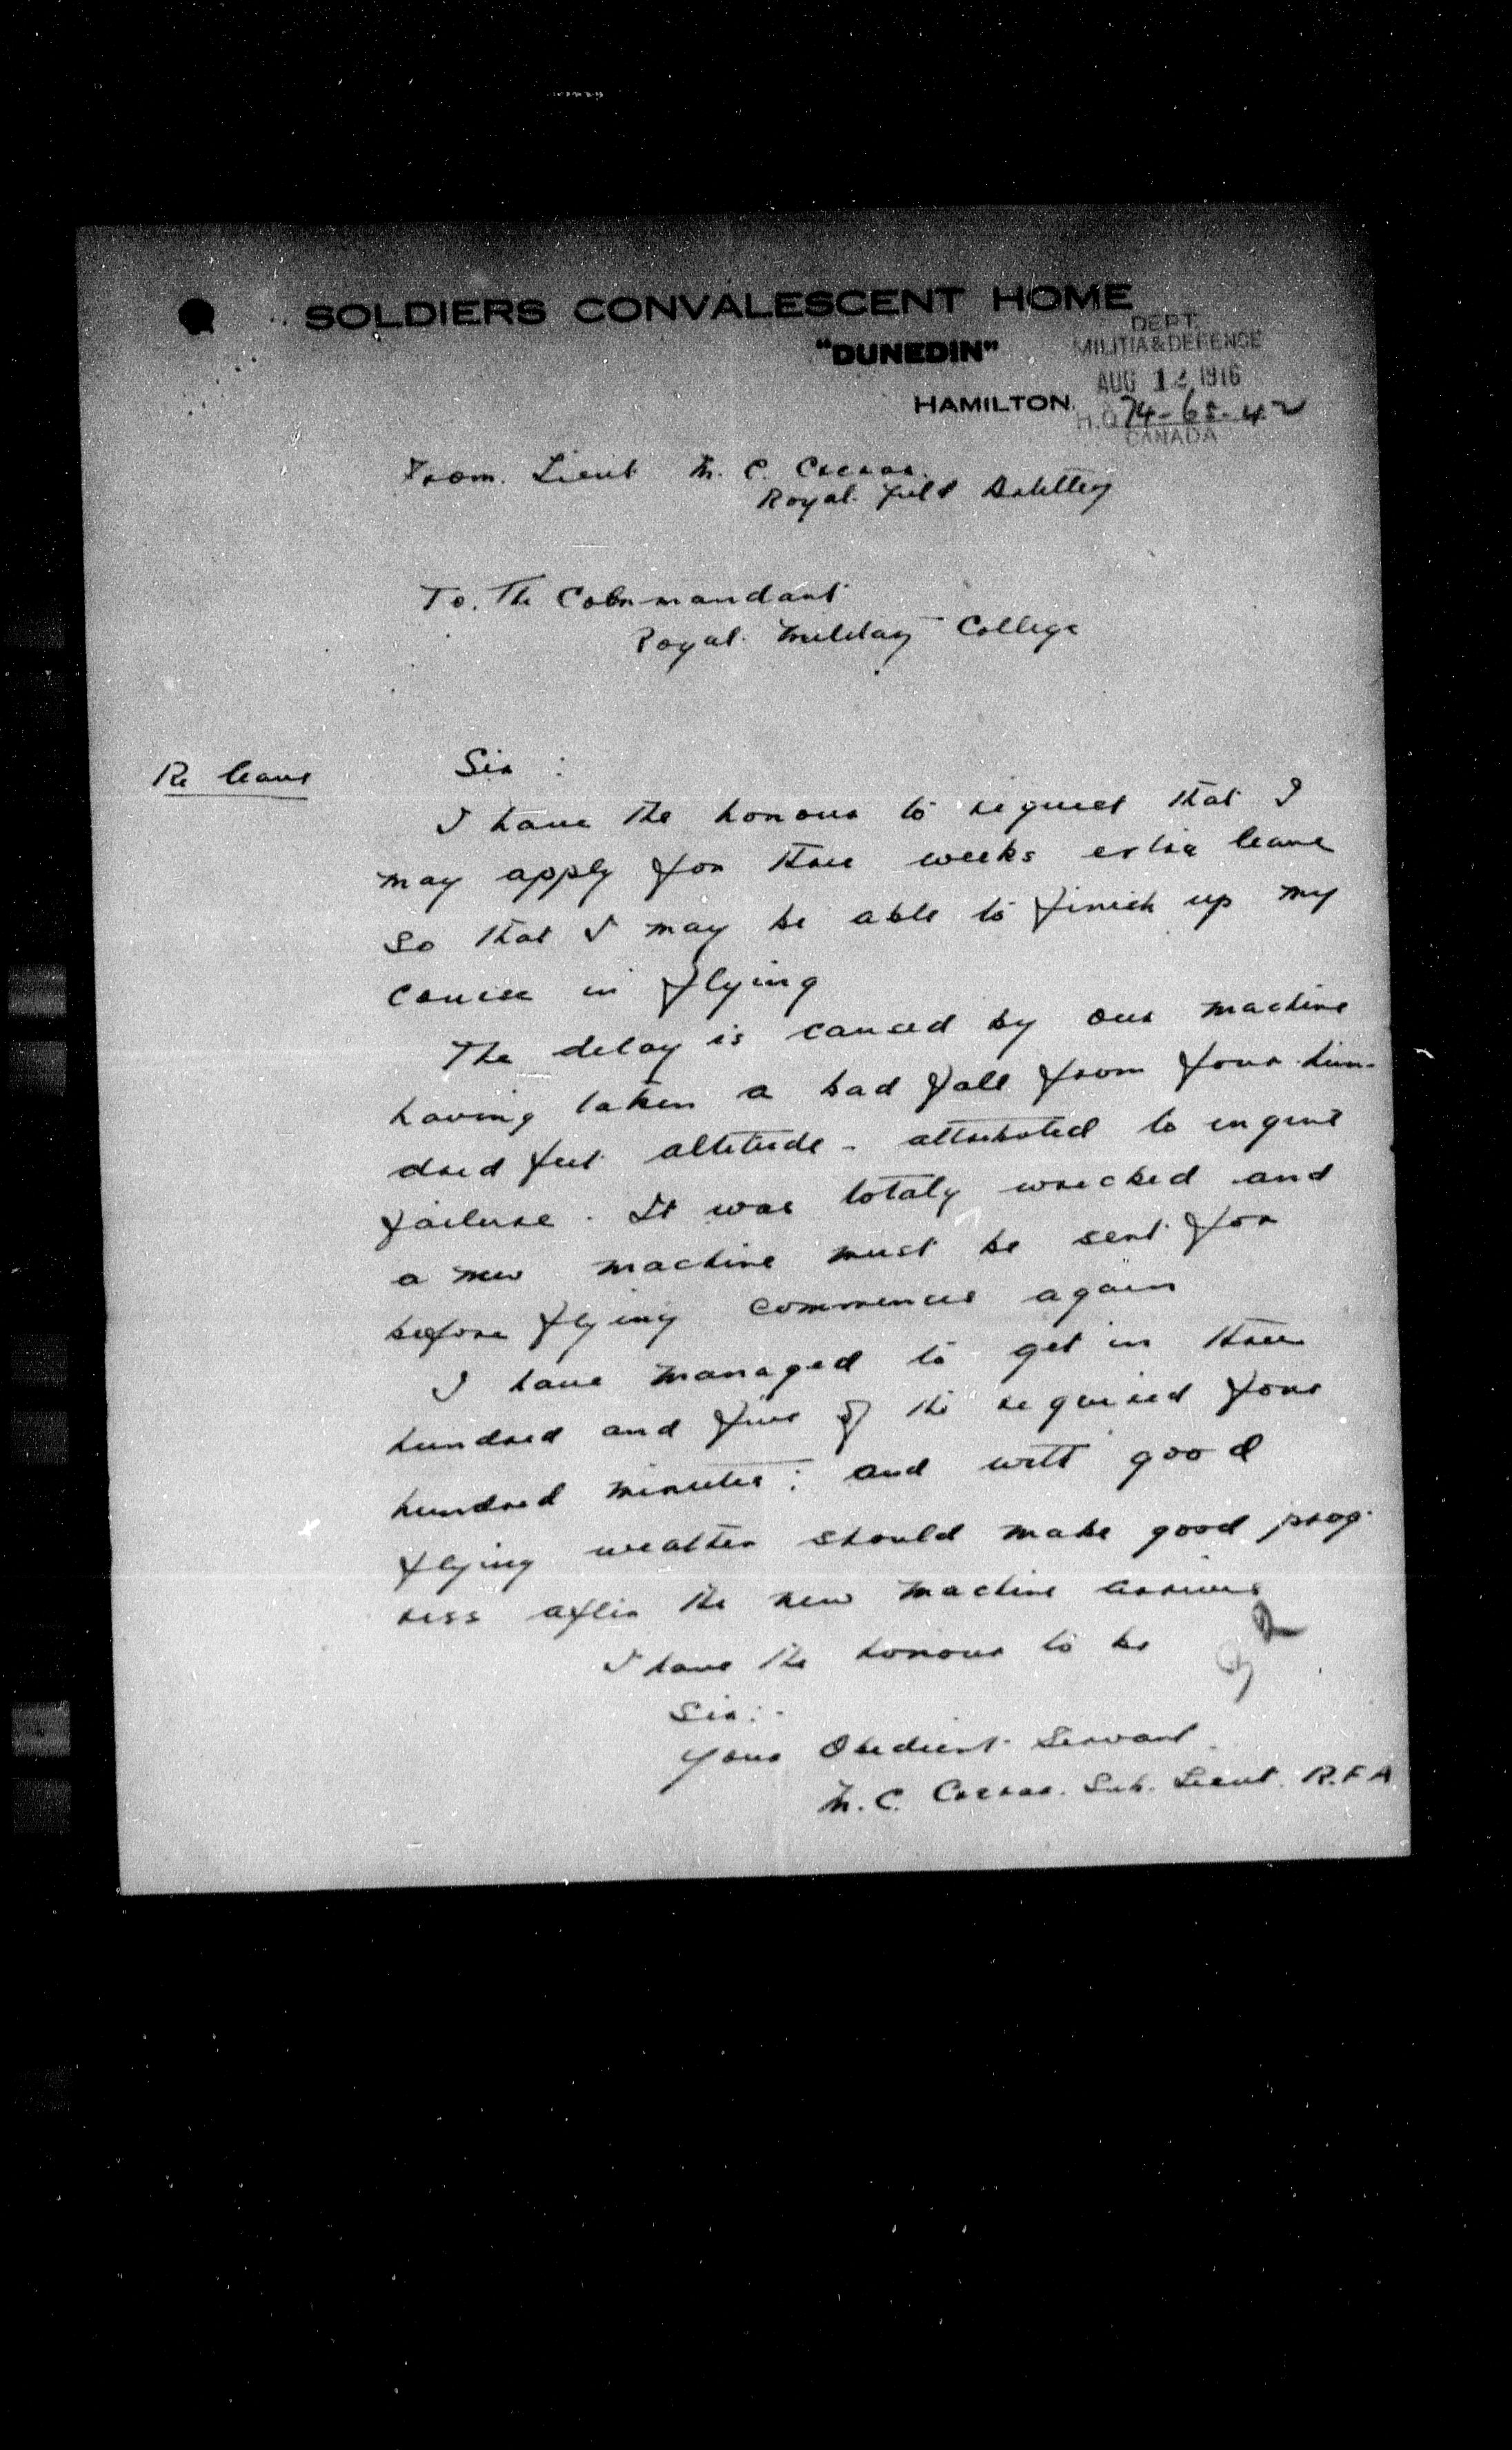 SOLDIERS CONVALESCENT HOME
"DUNEDIN"
HAMILTON.
DEPT.
MILITIA & DEFENCE
AUG 12 1916
H.Q. 74-65-42
CANADA
From. Lieut M. C. Caesar.
Royal Field Artillery
To. The Commandant
Royal Military College
Re leave
Sir :
I have the honour to request that I
may apply for three weeks extra leave
so that I may be able to finish up my
course in flying
The delay is caused by our machine
having taken a bad fall from four hun-
dred feet altitude - attributed to engine
failure. It was totaly wrecked and
a new machine must be sent for
before flying commences again
I have managed to get in three
hundred and five of the required four
hundred minutes: and with good
flying weather should make good prog-
ress after the new machine arrives
I have the honour to be
Sir:-
Your Obedient Servant.
M. C. Caesar. Sub. Lieut. R.F.A